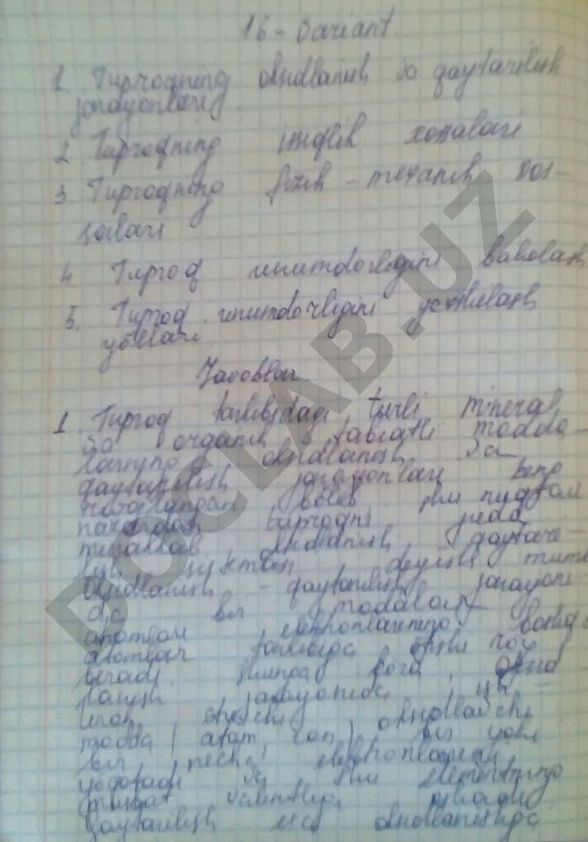 16 - Variant.
1. Tuproqning oksidlanish va qaytarilish
jarayonlari
2. Tuproqning issiqlik xossalari
3. Tuproqning fizik - mexanik xos-
salari
4. Tuproq unumdorligini baholash
5. Tuproq unumdorligini yaxshilash
yo'llari.
Javoblar
1. Tuproq tarkibidagi turli mineral
va organik tabiatli modda-
larning oksidlanish va
qaytarilish jarayonlari keng
bo'lib shu nuqtai
nazardan tuproqni juda
murakkab oksidlanish qaytari-
lish deyish mumk
Oksidlanish - qaytarilish jarayoni
da bir moddalar
atomlari elektronlarining boshqa
atomlar tarkibiga
beradi. Shunga ko'ra, oksid
lanish jarayonida
oksidlovchi
modda, atom, ion, bir yoki
bir necha elektronlarini
yo'qotadi va shu elementning
musbat valentligi oshadi.
Qaytarilish esa oksidlanishga
DOCLAB.UZ